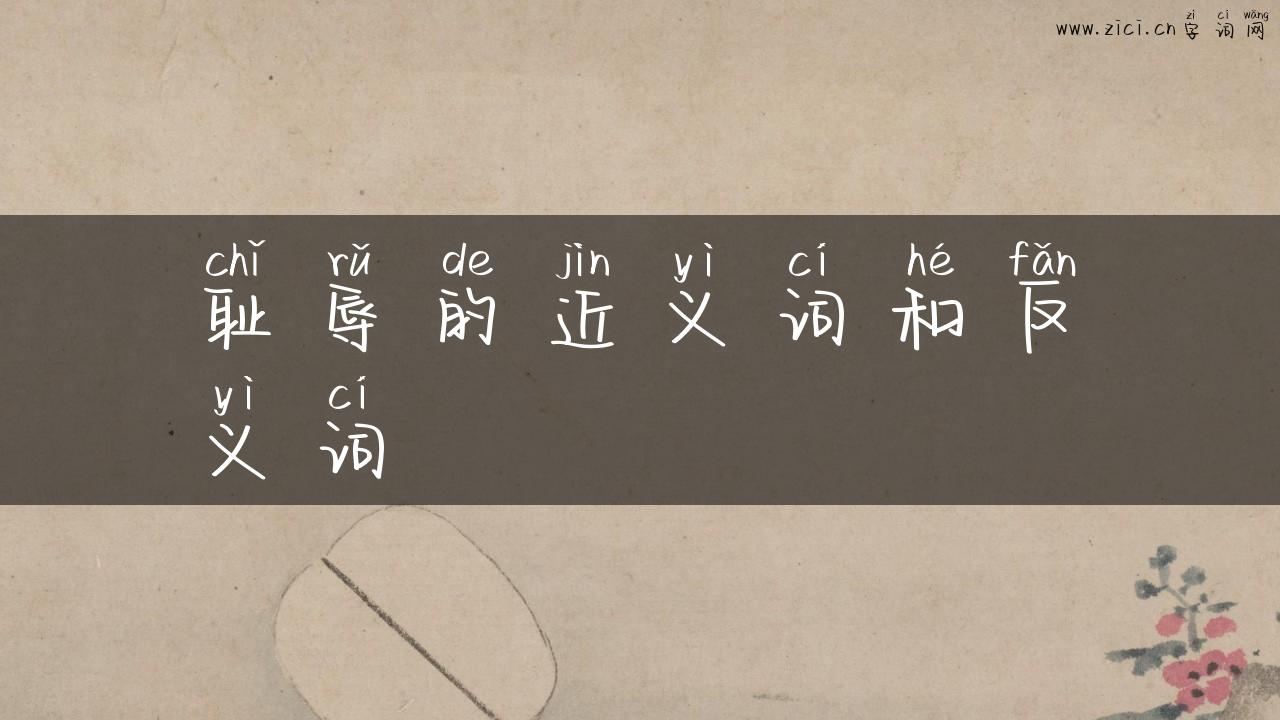 zì cí wǎng
www.zici.cn字词网
chǐ rǔ de jìn yì cí hé fǎn
耻辱的近义词和反
yì cí
义词